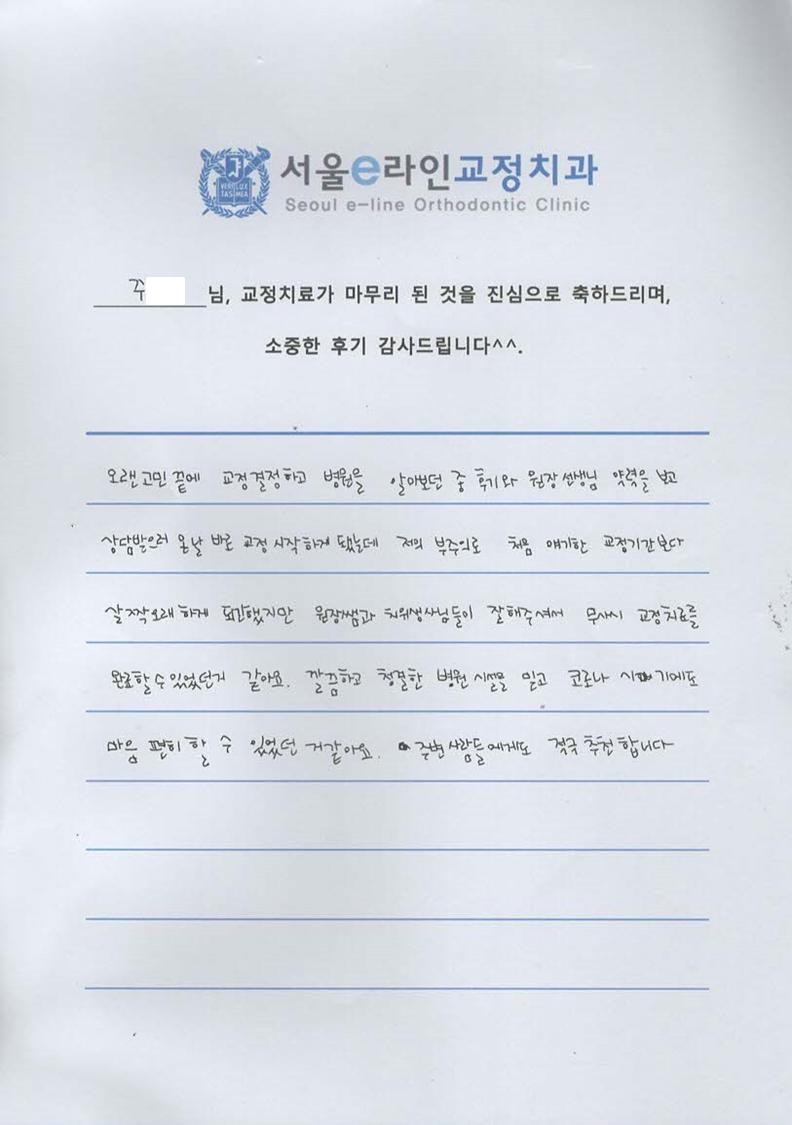 VERI LUX TAS MEA
서울e라인교정치과
Seoul e-line Orthodontic Clinic
주 님, 교정치료가 마무리 된 것을 진심으로 축하드리며,
소중한 후기 감사드립니다^^.
오랜고민 끝에 교정결정하고 병원을 알아보던 중 후기와 원장선생님 약력을 보고
상담받으러 온날 바로 교정 시작하게 됐는데 저의 부주의로 처음 얘기한 교정기간보다
살짝오래하게 되긴했지만 원장쌤과 치위생사님들이 잘해주셔서 무사시 교정치료를
완료할수있었던거 같아요. 깔끔하고 청결한 병원 시설을 믿고 코로나 시기에도
마음 편히 할 수 있었던 거같아요. 주변사람들에게도 적극 추천합니다